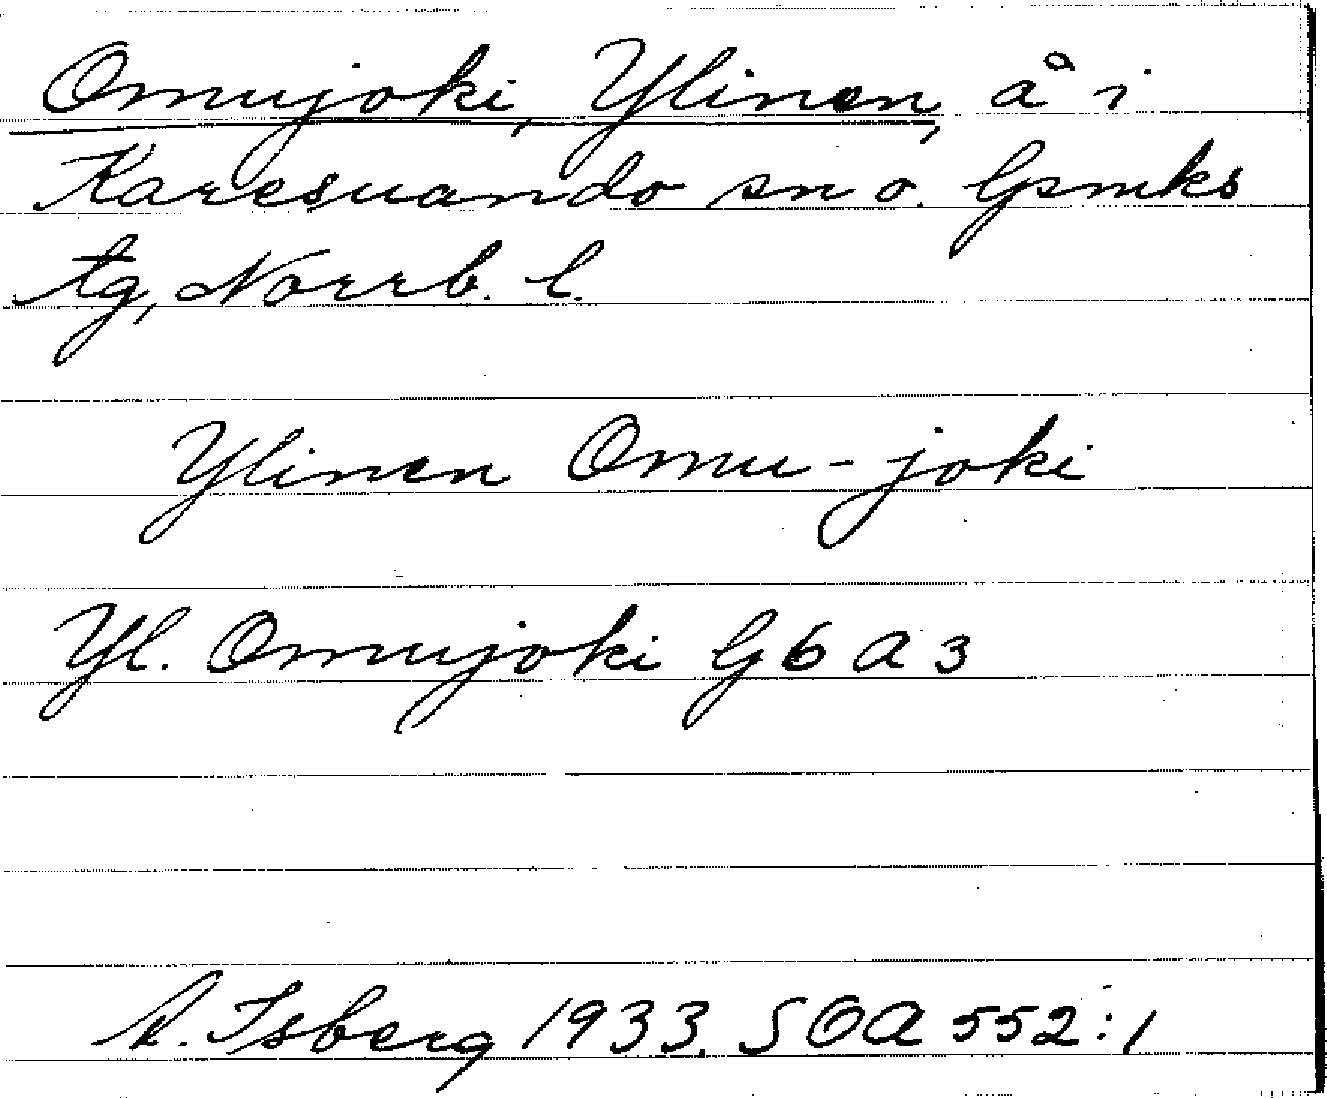 Omujoki, Ylinen, å i
Karesuando sn o. Gsmks
tg, Norrb. l.
Ylinen Omu-joki
Yl. Omujoki G6 a 3
A. Isberg 1933. SOA 552:1